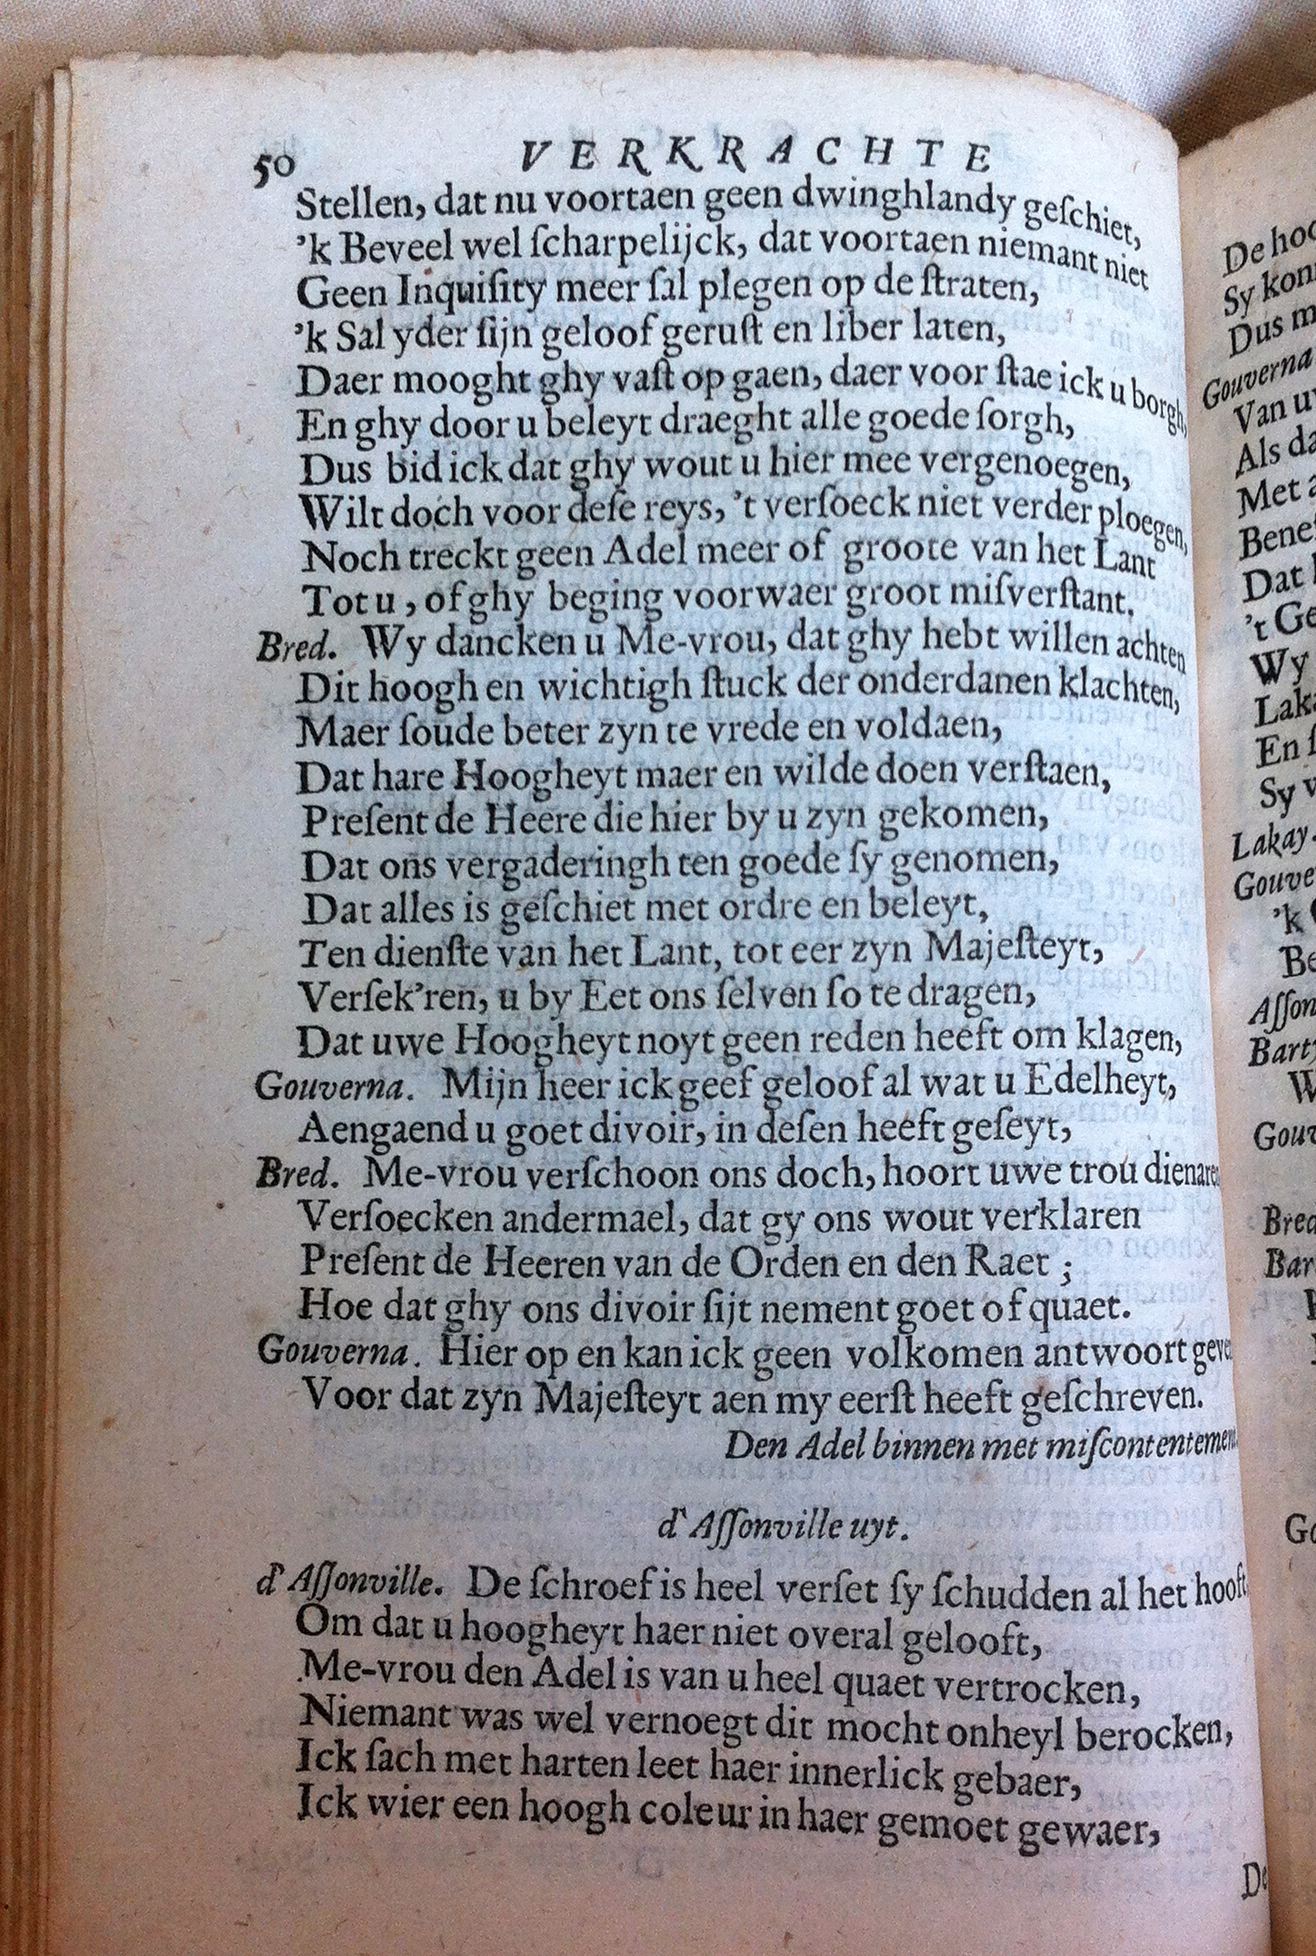 50 VERKRACHTE
Stellen, dat nu voortaen geen dwinghlandy geſchiet,
’k Beveel wel ſcharpelijck, dat voortaen niemant niet
Geen Inquiſity meer ſal plegen op de ſtraten,
’k Sal yder ſijn geloof geruſt en liber laten,
Daer mooght ghy vaſt op gaen, daer voor ſtae ick u borgh,
En ghy door u beleyt draeght alle goede ſorgh,
Dus bid ick dat ghy wout u hier mee vergenoegen,
Wilt doch voor deſe reys, ’t verſoeck niet verder ploegen,
Noch treckt geen Adel meer of groote van het Lant
Tot u, of ghy beging voorwaer groot miſverſtant.
Bred. Wy dancken u Me-vrou, dat ghy hebt willen achten
Dit hoogh en wichtigh ſtuck der onderdanen klachten,
Maer ſoude beter zyn te vrede en voldaen,
Dat hare Hoogheyt maer en wilde doen verſtaen,
Preſent de Heere die hier by u zyn gekomen,
Dat ons vergaderingh ten goede ſy genomen,
Dat alles is geſchiet met ordre en beleyt,
Ten dienſte van het Lant, tot eer zyn Majeſteyt,
Verſek’ren, u by Eet ons ſelven ſo te dragen,
Dat uwe Hoogheyt noyt geen reden heeft om klagen,
Gouverna. Mijn heer ick geef geloof al wat u Edelheyt,
Aengaend u goet divoir, in deſen heeft geſeyt,
Bred. Me-vrou verſchoon ons doch, hoort uwe trou dienaren
Verſoecken andermael, dat gy ons wout verklaren
Preſent de Heeren van de Orden en den Raet ;
Hoe dat ghy ons divoir ſijt nement goet of quaet.
Gouverna. Hier op en kan ick geen volkomen antwoort geve
Voor dat zyn Majeſteyt aen my eerſt heeft geſchreven.
Den Adel binnen met miſcontentement
d’Aſſonville uyt.
d’Aſſonville. De ſchroef is heel verſet ſy ſchudden al het hooft,
Om dat u hoogheyt haer niet overal gelooft,
Me-vrou den Adel is van u heel quaet vertrocken,
Niemant was wel vernoegt dit mocht onheyl berocken,
Ick ſach met harten leet haer innerlick gebaer,
Ick wier een hoogh coleur in haer gemoet gewaer,
De
De hoo
Sy kon
Dus m
Gouverna
Van u
Als da
Met
Bene
Dat
’t Ge
Wy
Lak
En
Sy v
Lakay.
Gouve
’k
Be
Aſſon
Bart
W
Gouv
Bred
Bar
Go